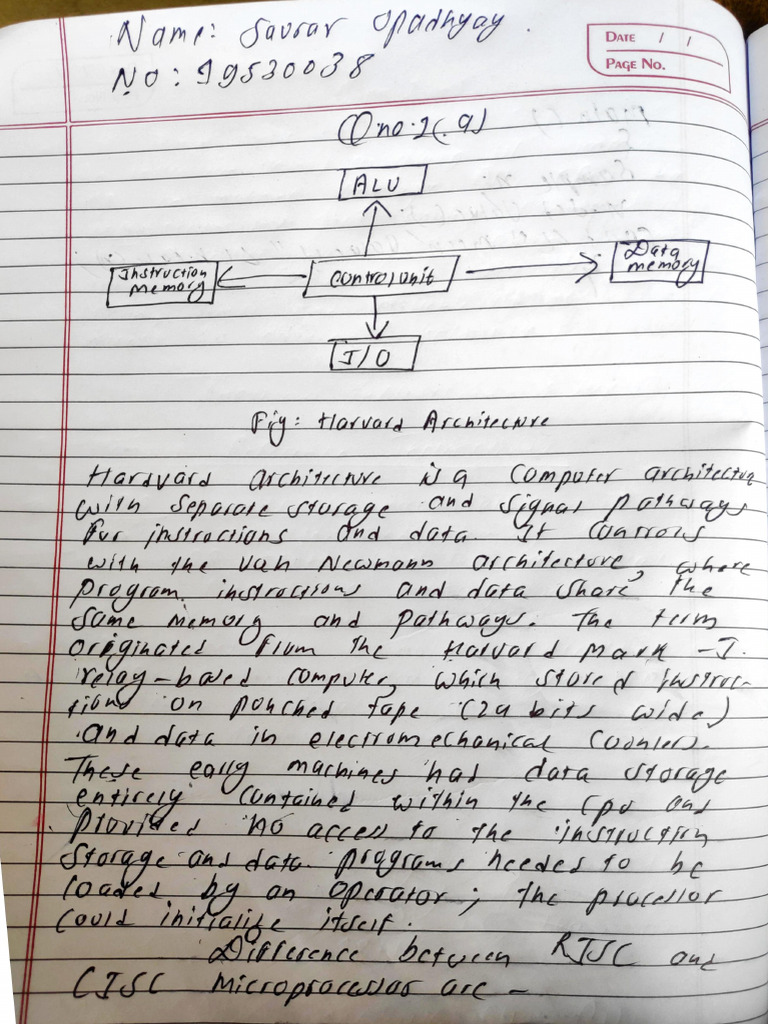 Name: Saurav Upadhyay.
NO: 19530038
DATE / /
PAGE No.
Q no. 1(.a)
ALU
Instruction
memory
Control unit
Data
memory
I/O
Fig: Harvard Architecture
Hardvard architecture is a computer architecture
with separate storage and signal pathways
for instructions and data. It controls
with the Van Newmann architecture, where
program instructions and data share the
same memory and pathways. The term
originated from the Harvard Mark -I.
relay-based computer, which stored instruc-
tions on punched tape (24 bits wide)
and data in electromechanical counters.
These early machines had data storage
entirely contained within the cpu and
provided no access to the instruction
storage and data. programs needed to be
loaded by an operator; the processor
could initialize itself.
Difference between RISC and
CISC Microprocessor are -